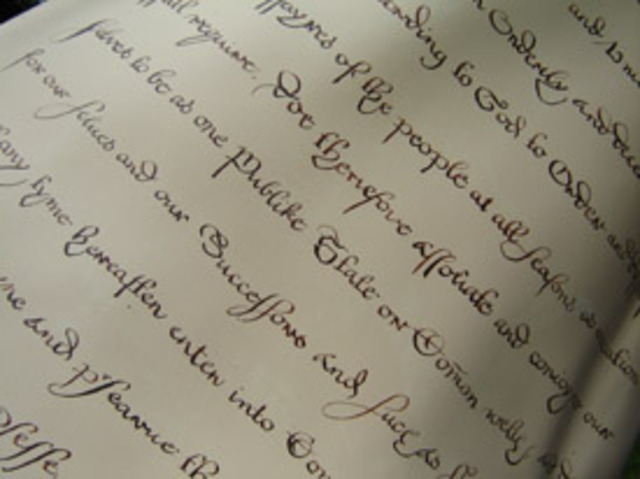 and, to m
Orderly and
ording to God to Order
ffayres of the people at all seasons as
all require. Doe therefore assotiate and conioyne our
selves to be as one Publike State or Comon welth,
for our selves and our Successors and such as
any tyme hereafter enter into Com
ne and p'searve th
ofesse